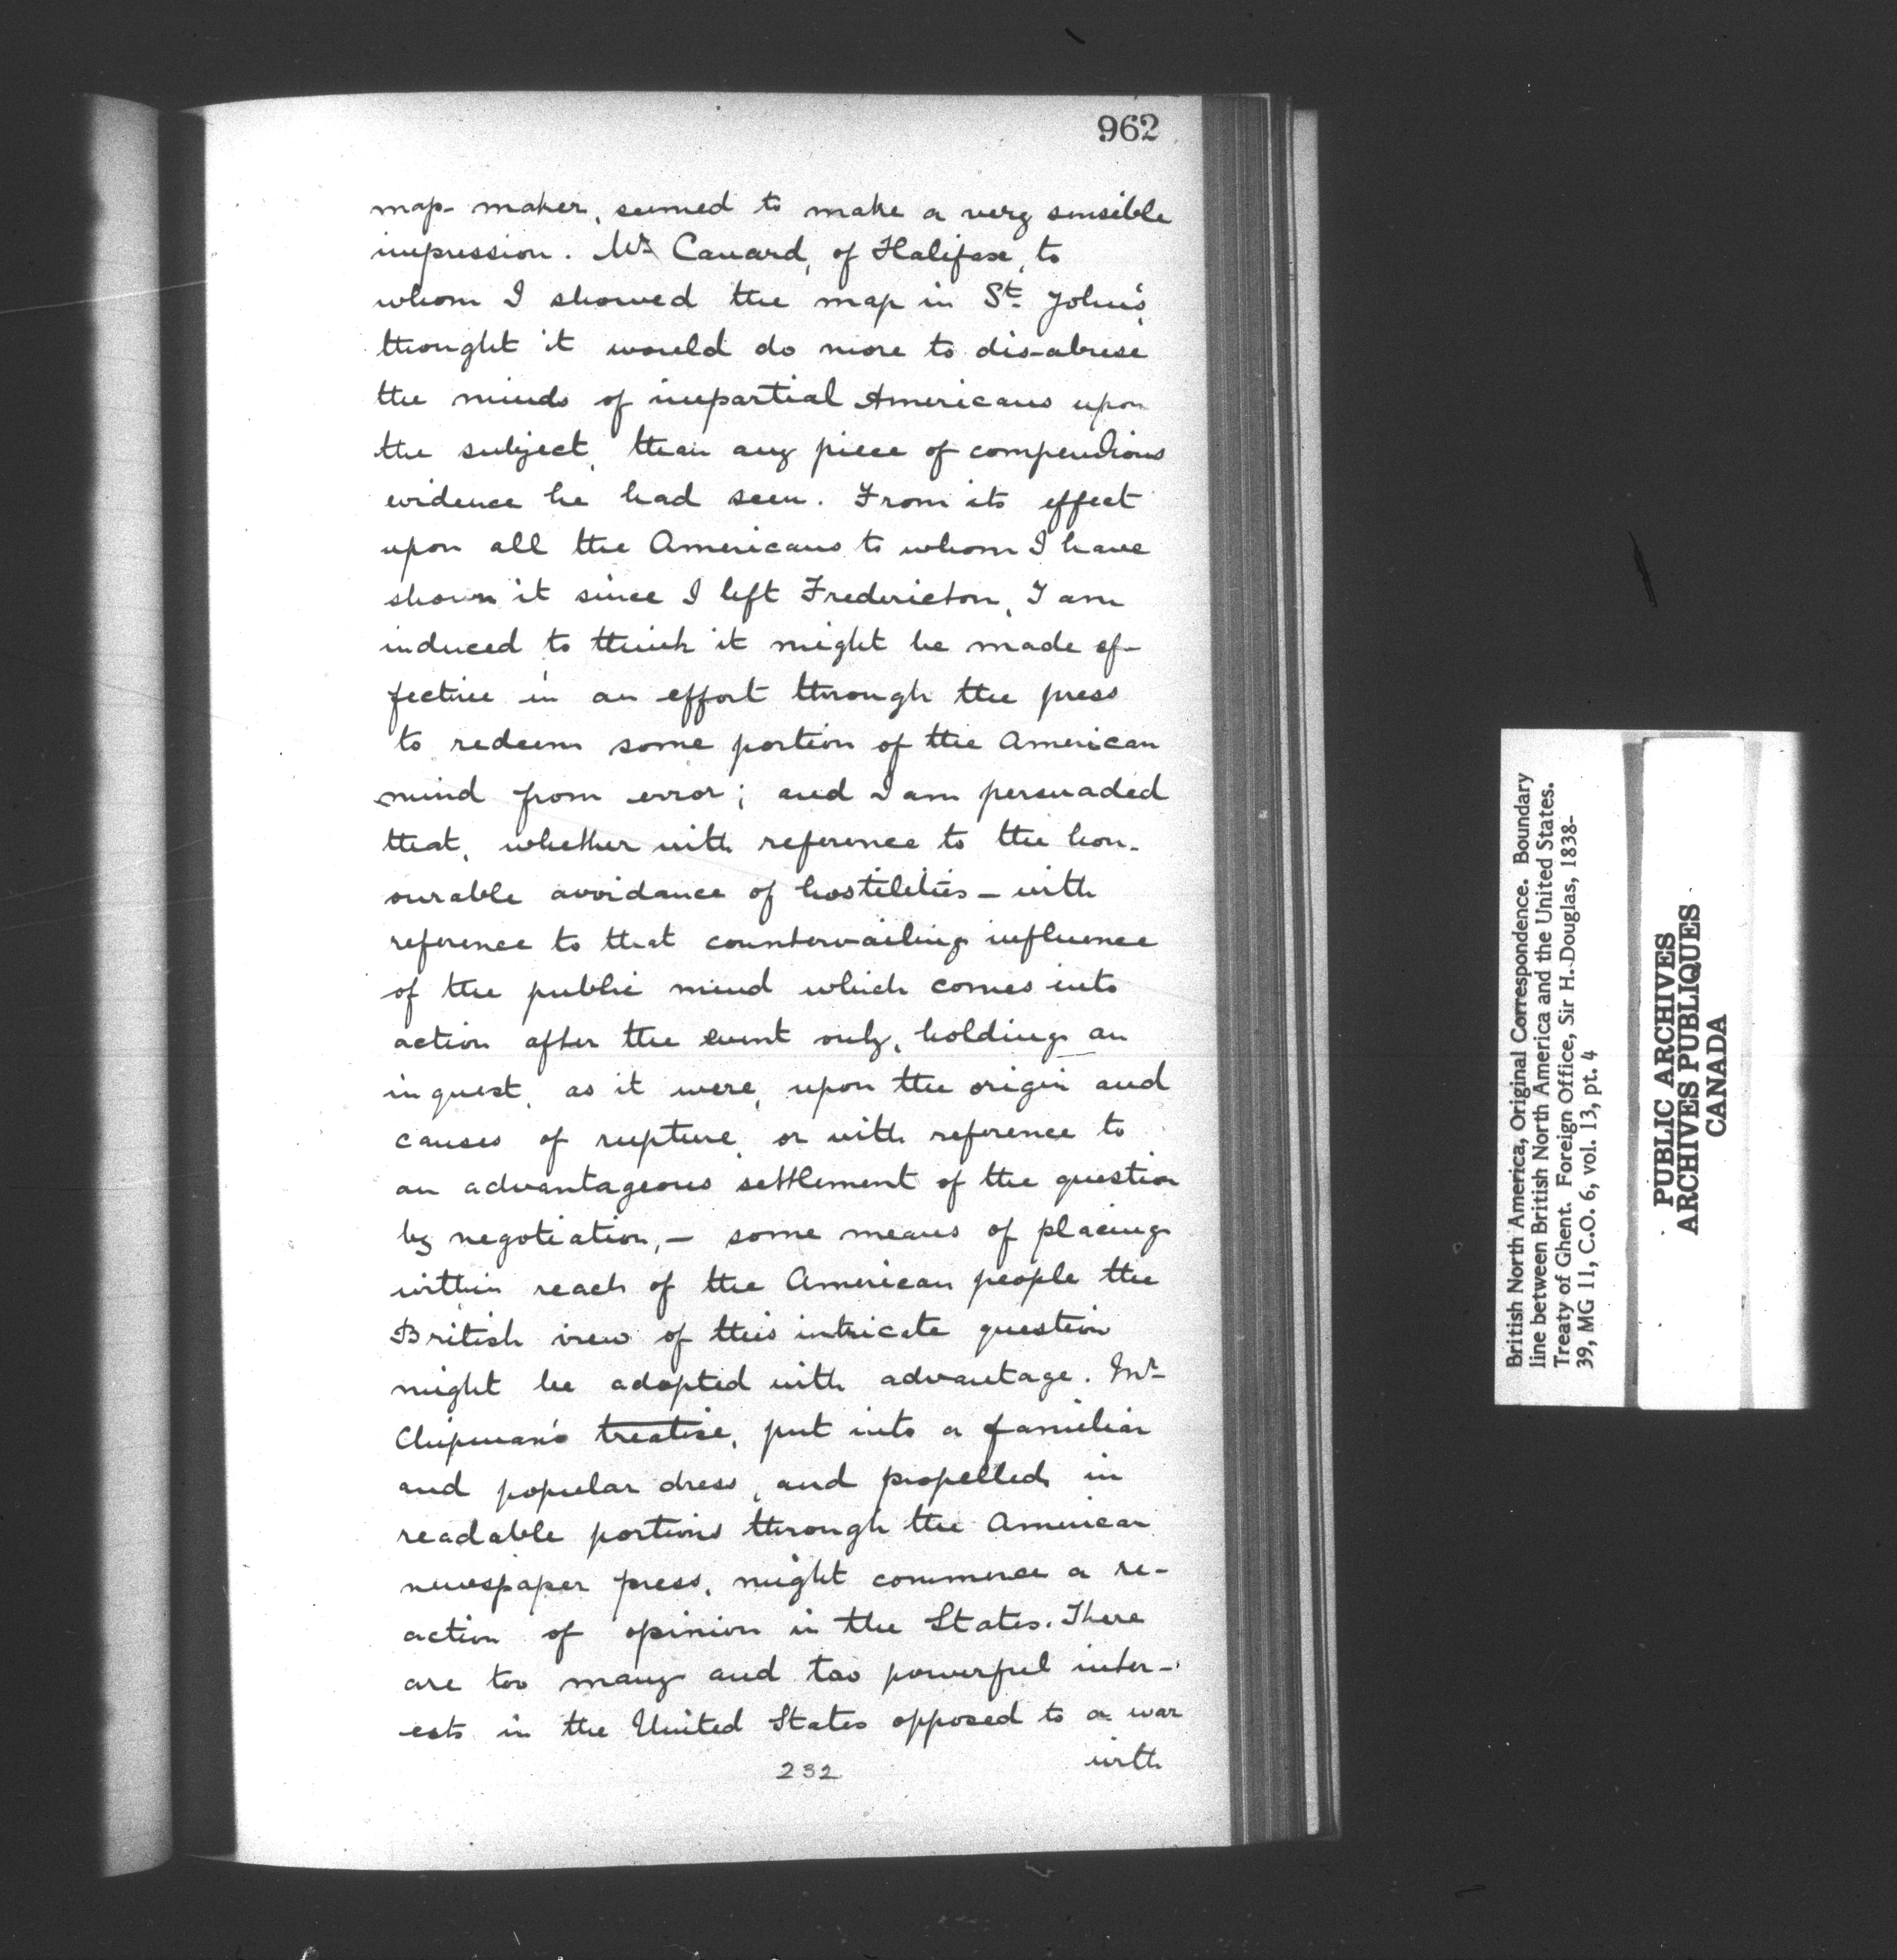 962
map-maker, seemed to make a very sensible
impression. Mr Canard, of Halifax, to
whom I showed the map in St. John's,
thought it would do more to dis-abuse
the minds of impartial Americans upon
the subject, than any piece of compendious
evidence he had seen. From its effect
upon all the Americans to whom I have
shown it since I left Fredericton, I am
induced to think it might be made ef-
fective in an effort through the press
to redeem some portion of the American
mind from error; and I am persuaded
that, whether with reference to the hon-
ourable avoidance of hostilities - with
reference to that countervailing influence
of the public mind which comes into
action after the event only, holding an
inquest, as it were, upon the origin and
causes of rupture, or with reference to
an advantageous settlement of the question
by negotiation, - some means of placing
within reach of the American people the
British view of this intricate question
might be adopted with advantage. Mr
Chipman's treatise, put into a familiar
and popular dress, and propelled in
readable portions through the American
newspaper press, might commence a re-
action of opinion in the States. There
are too many and too powerful inter-
ests in the United States opposed to a war
with
232
British North America, Original Correspondence. Boundary
line between British North America and the United States.
Treaty of Ghent. Foreign Office, Sir H. Douglas, 1838-
39, MG 11, C.O. 6, vol. 13, pt. 4
PUBLIC ARCHIVES
ARCHIVES PUBLIQUES
CANADA